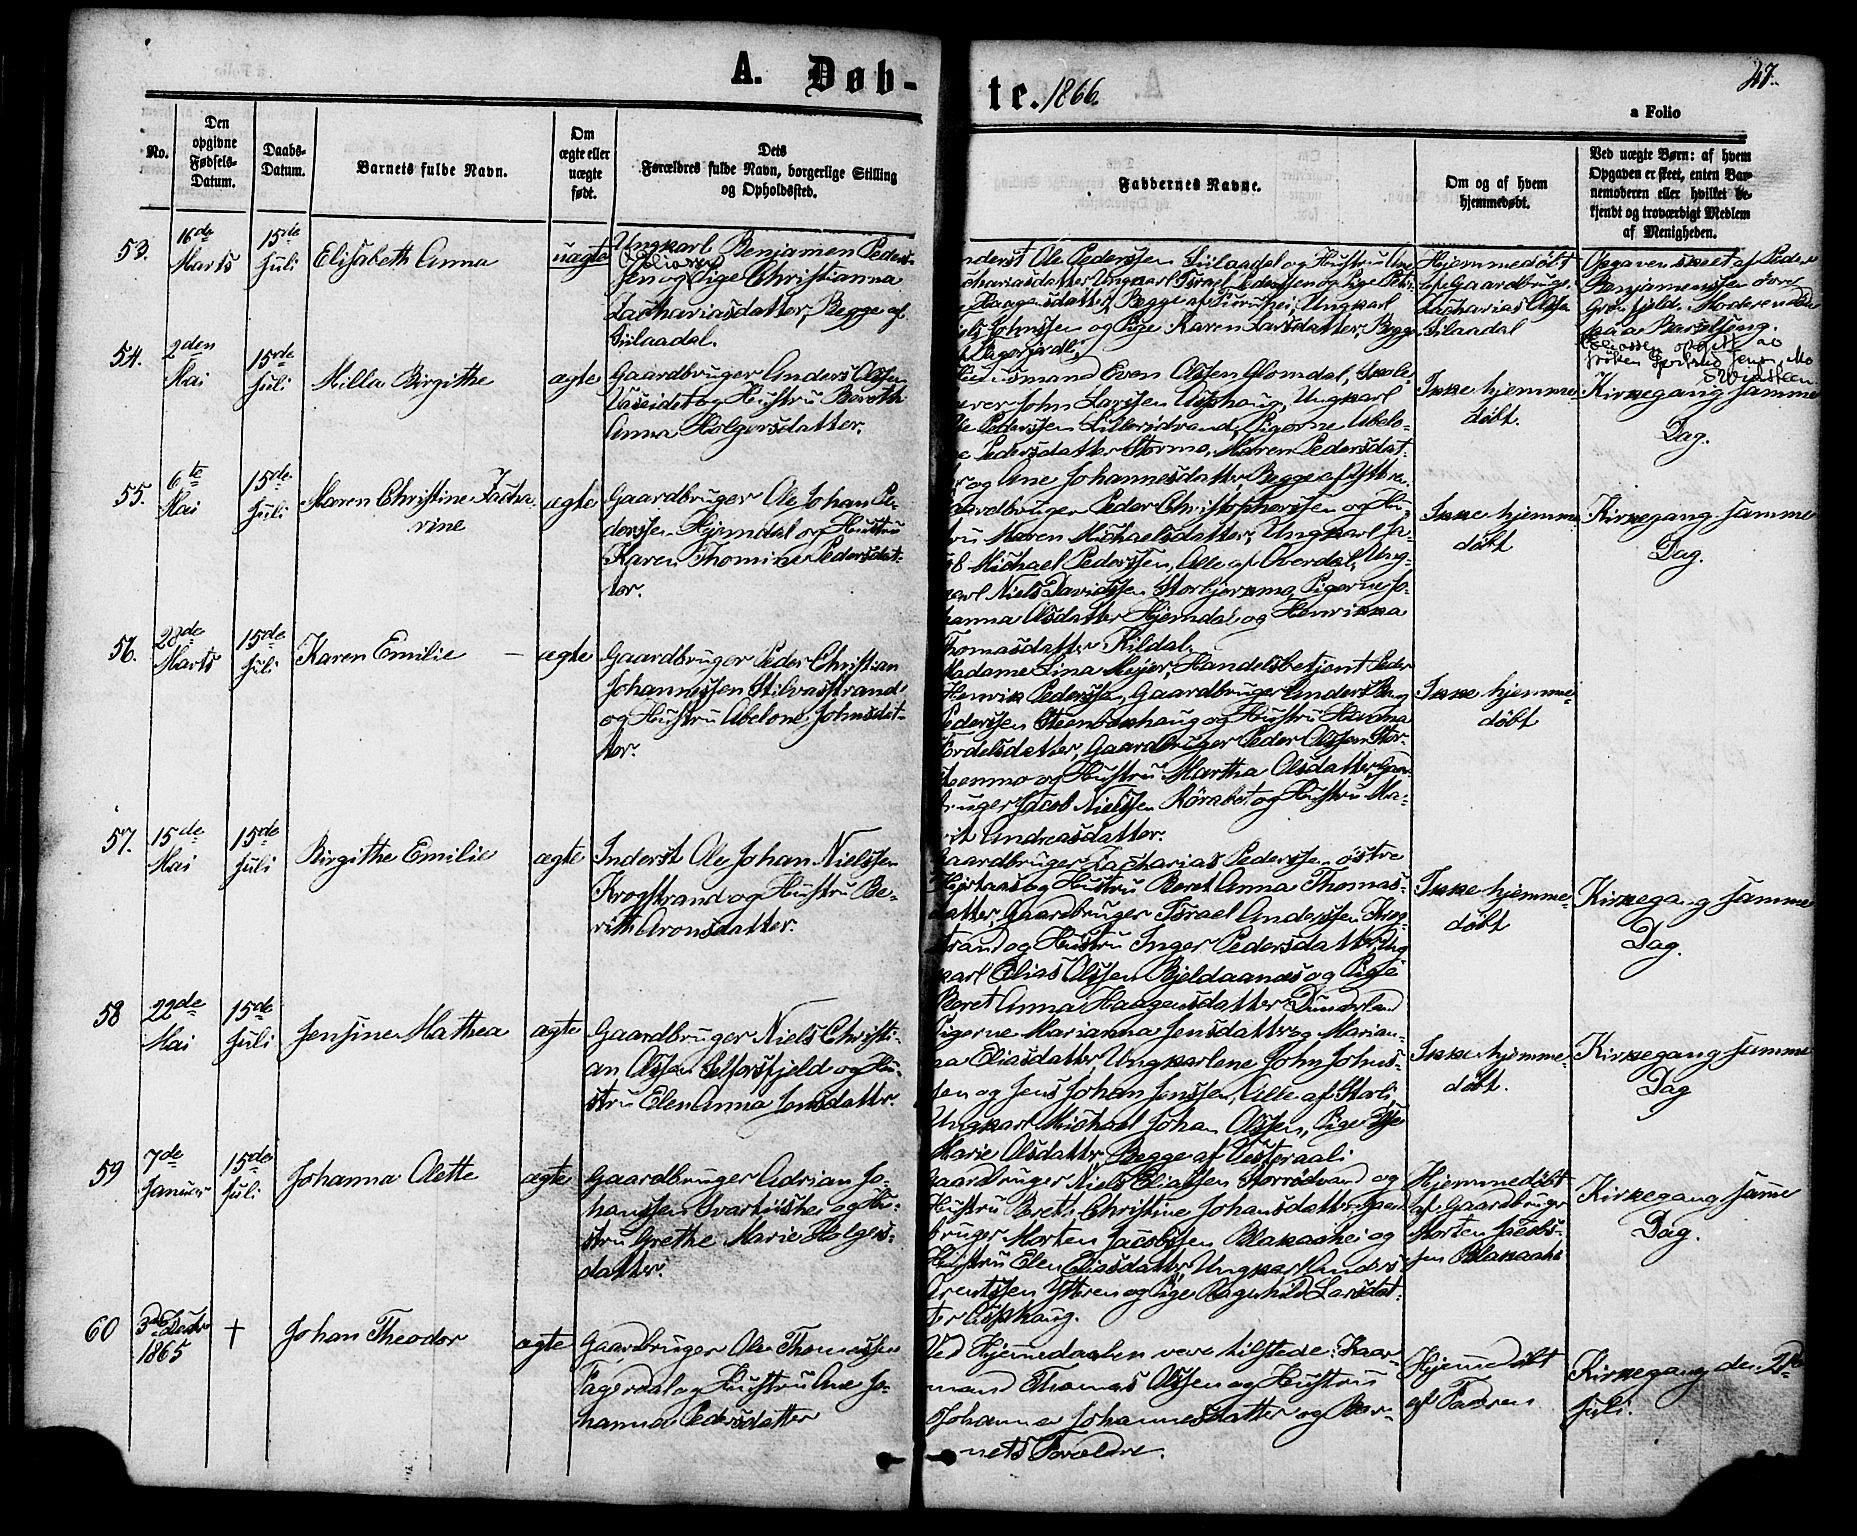 A. Døb-
te. 1866.
47.
a Folio
No.
Den opgivne Fødsels-Datum.
Daabs-Datum.
Barnets fulde Navn.
Om ægte eller uægte født.
Dets Forældres fulde Navn, borgerlige Stilling og Opholdssted.
Faddernes Navne.
Om og af hvem hjemmedøbt.
Ved uægte Børn: af hvem
Opgaven er skeet, enten Bar-
nemoderen eller hvilket be-
kjendt og troværdigt Medlem
af Menigheden.
53.
16de Marts
15de Juli
Elisabeth Anna
uægte
Ungkarl Benjamen Peders-
sen og Pige Christianna
Zachariasdatter, Begge af
Siilaadal.
nderst Ole Pederssen Siilaadal og Hustru
chariasdatter, Ungkarl Israel Pederssen og Pige
Haagensdatter, Begge af; Ungkarl
Johnssen og Pige Karen Larsdatter, Begge
Hjemmedøbt
af Gaardbruger
Zacharias Olssen
Siilaadal
Opgaven skeet af Peder
Benjamenssen øvre
Grønfjeld. Moderen død
paa Barselseng.
54.
2den Mai
15de Juli
Milla Birgithe
ægte
Gaardbruger Anders Olssen
og Hustru Bereth
Anna Holgersdatter.
Huusmand Even Olssen Glomdal, Skole-
lærer John Larssen Asphaug, Ungkarl
Ole Pederssen Lillerødvand, Pigerne Abelo-
ne Pedersdatter Stormo, Maren Pedersdat-
er og Ane Johannesdatter Begge af Yttre
Ikke hjemme-
døbt.
Kirkegang samme
Dag.
55.
6te Mai
15de Juli
Maren Christine Zacha-
rine
ægte
Gaardbruger Ole Johan Pe-
derssen Hjemdal og Hustru
Karen Thomine Pedersdat-
ter.
aardbruger Peder Christopherssen og Hu-
tru Maren Michaelsdatter, Ungkarl Ja-
ob Michael Pederssen, Alle af Overdal, Ung-
karl Niels Davidssen Storbjerkmo, Pigerne Jo-
hanna Olsdatter Hjemdal og Henrikka
Thomasdatter Kildal.
Ikke hjemme
døbt
Kirkegang samme
Dag.
56.
28de Marts
15de Juli
Karen Emilie
ægte
Gaardbruger Peder Christian
Johannessen Stilvasstrand
og Hustru Abelone Johnsdat-
ter.
Madame Lina Meyer, Handelsbetjent Peder
Henrik Pederssen, Gaardbruger Anders Berg
Pederssen Steenbækhaug og Hustru Hanna
Fordelsdatter, Gaardbruger Peder Olssen Stor-
steenmo og Hustru Martha Olsdatter, Gaar-
bruger Jacob Nielssen Rørabet og Hustru Ma-
rit Andreasdatter.
Ikke hjemme-
døbt
57.
15de Mai
15de Juli
Birgithe Emilie
ægte
Inderst Ole Johan Nielssen
Krogstrand og Hustru Be-
rith Aronsdatter.
Gaardbruger Zacharias Pederssen østre
Hjertaas og Hustru Beret Anna Thomas-
datter, Gaardbruger Israel Anderssen Krog-
strand og Hustru Inger Pedersdatter, Ung
karl Elias Olssen Bjeldaanæs og Pige
Beret Anna Haagensdatter Dunderland
Ikke hjemme-
døbt
Kirkegang samme
Dag.
58
22de Mai
15de Juli
Jensine Mathea
ægte
Gaardbruger Niels Christi-
an Olssen Selforsfjeld og Hu-
stru Elen Anna Jensdatter.
Pigerne Marianna Jensdatter og Marian-
na Eliasdatter, Ungkarlene John Johns-
sen og Jens Johan Jenssen, Alle af Storli,
Ungkarl Michael Johan Olssen, Pige
Marie Olsdatter, Begge af Vesteraali
Ikke hjemme-
døbt.
Kirkegang samme
Dag
59
7de Januar
15de Juli
Johanna Olette
ægte
Gaardbruger Adrian Jo-
hanssen Svartishei og Hu-
stru Grethe Marie Holgers-
datter.
Gaardbruger Niels Eliassen Storrødvand og
Hustru Beret Christine Johansdatter, Gaard
bruger Morten Jacobssen Blakaahei og
Hustru Elen Eliasdatter, Ungkarl Anders
Arentssen Ytteren og Pige Ragnhild Larsdat-
ter Asphaug.
Hjemmedøbt
af Gaardbruger
Morten Jacobs-
sen Blakaahei
Kirkegang samme
Dag.
60
3die Decbr 1865
†
Johan Theodor
ægte
Gaardbruger Ole Thomassen
Fagerdal og Hustru Ane Jo-
hanna Pedersdatter
Ved Hjemmedaaben vare tilstede: Kaar-
mand Thomas Olssen og Hustru
Johanna Johannesdatter og Bar-
nets Forældre.
Hjemmedøbt
af Faderen
Kirkegang den 2den
Juli.